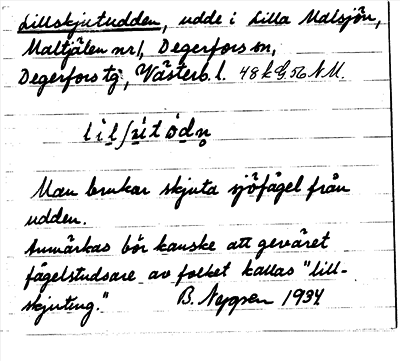 Lillskjutudden, udde i Lilla Malsjön,
Maltjälen nr 1, Degerfors sn,
Degerfors tg, Västerb. l. 48 k G 56 N.M.
Man brukar skjuta sjöfågel från
udden.
Anmärkas bör kanske att geväret
fågelstudsare av folket kallas "lill-
skjuting."
B. Nygren 1934